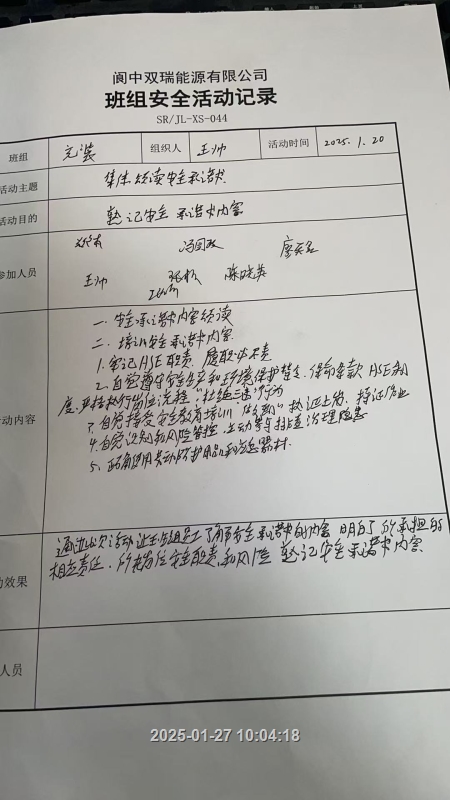 阆中双瑞能源有限公司
班组安全活动记录
SR/JL-XS-044
班组 充装 组织人 王帅 活动时间 2025.1.20
活动主题 集体领读安全承诺书
活动目的 熟记安全承诺书内容
参加人员
王帅 陈晓英
一、安全承诺书内容领读
二、培训安全承诺书内容
1.牢记HSE职责,履职尽责
2.自觉遵守安全生产和环境保护禁令、保命条款、HSE制
度,严格执行岗位流程,杜绝"三违"行为
3.自觉接受安全教育培训 执证上岗、持证作业
4.自觉识别和风险管控,主动参与排查治理隐患
5、正确使用劳动防护用品和应急器材.
活动内容
通过此次活动让班组员工了解安全承诺书的内容 明白了所承担的
相应责任、所在岗位安全职责和风险 熟记安全承诺书内容
动效果
人员
2025-01-27 10:04:18